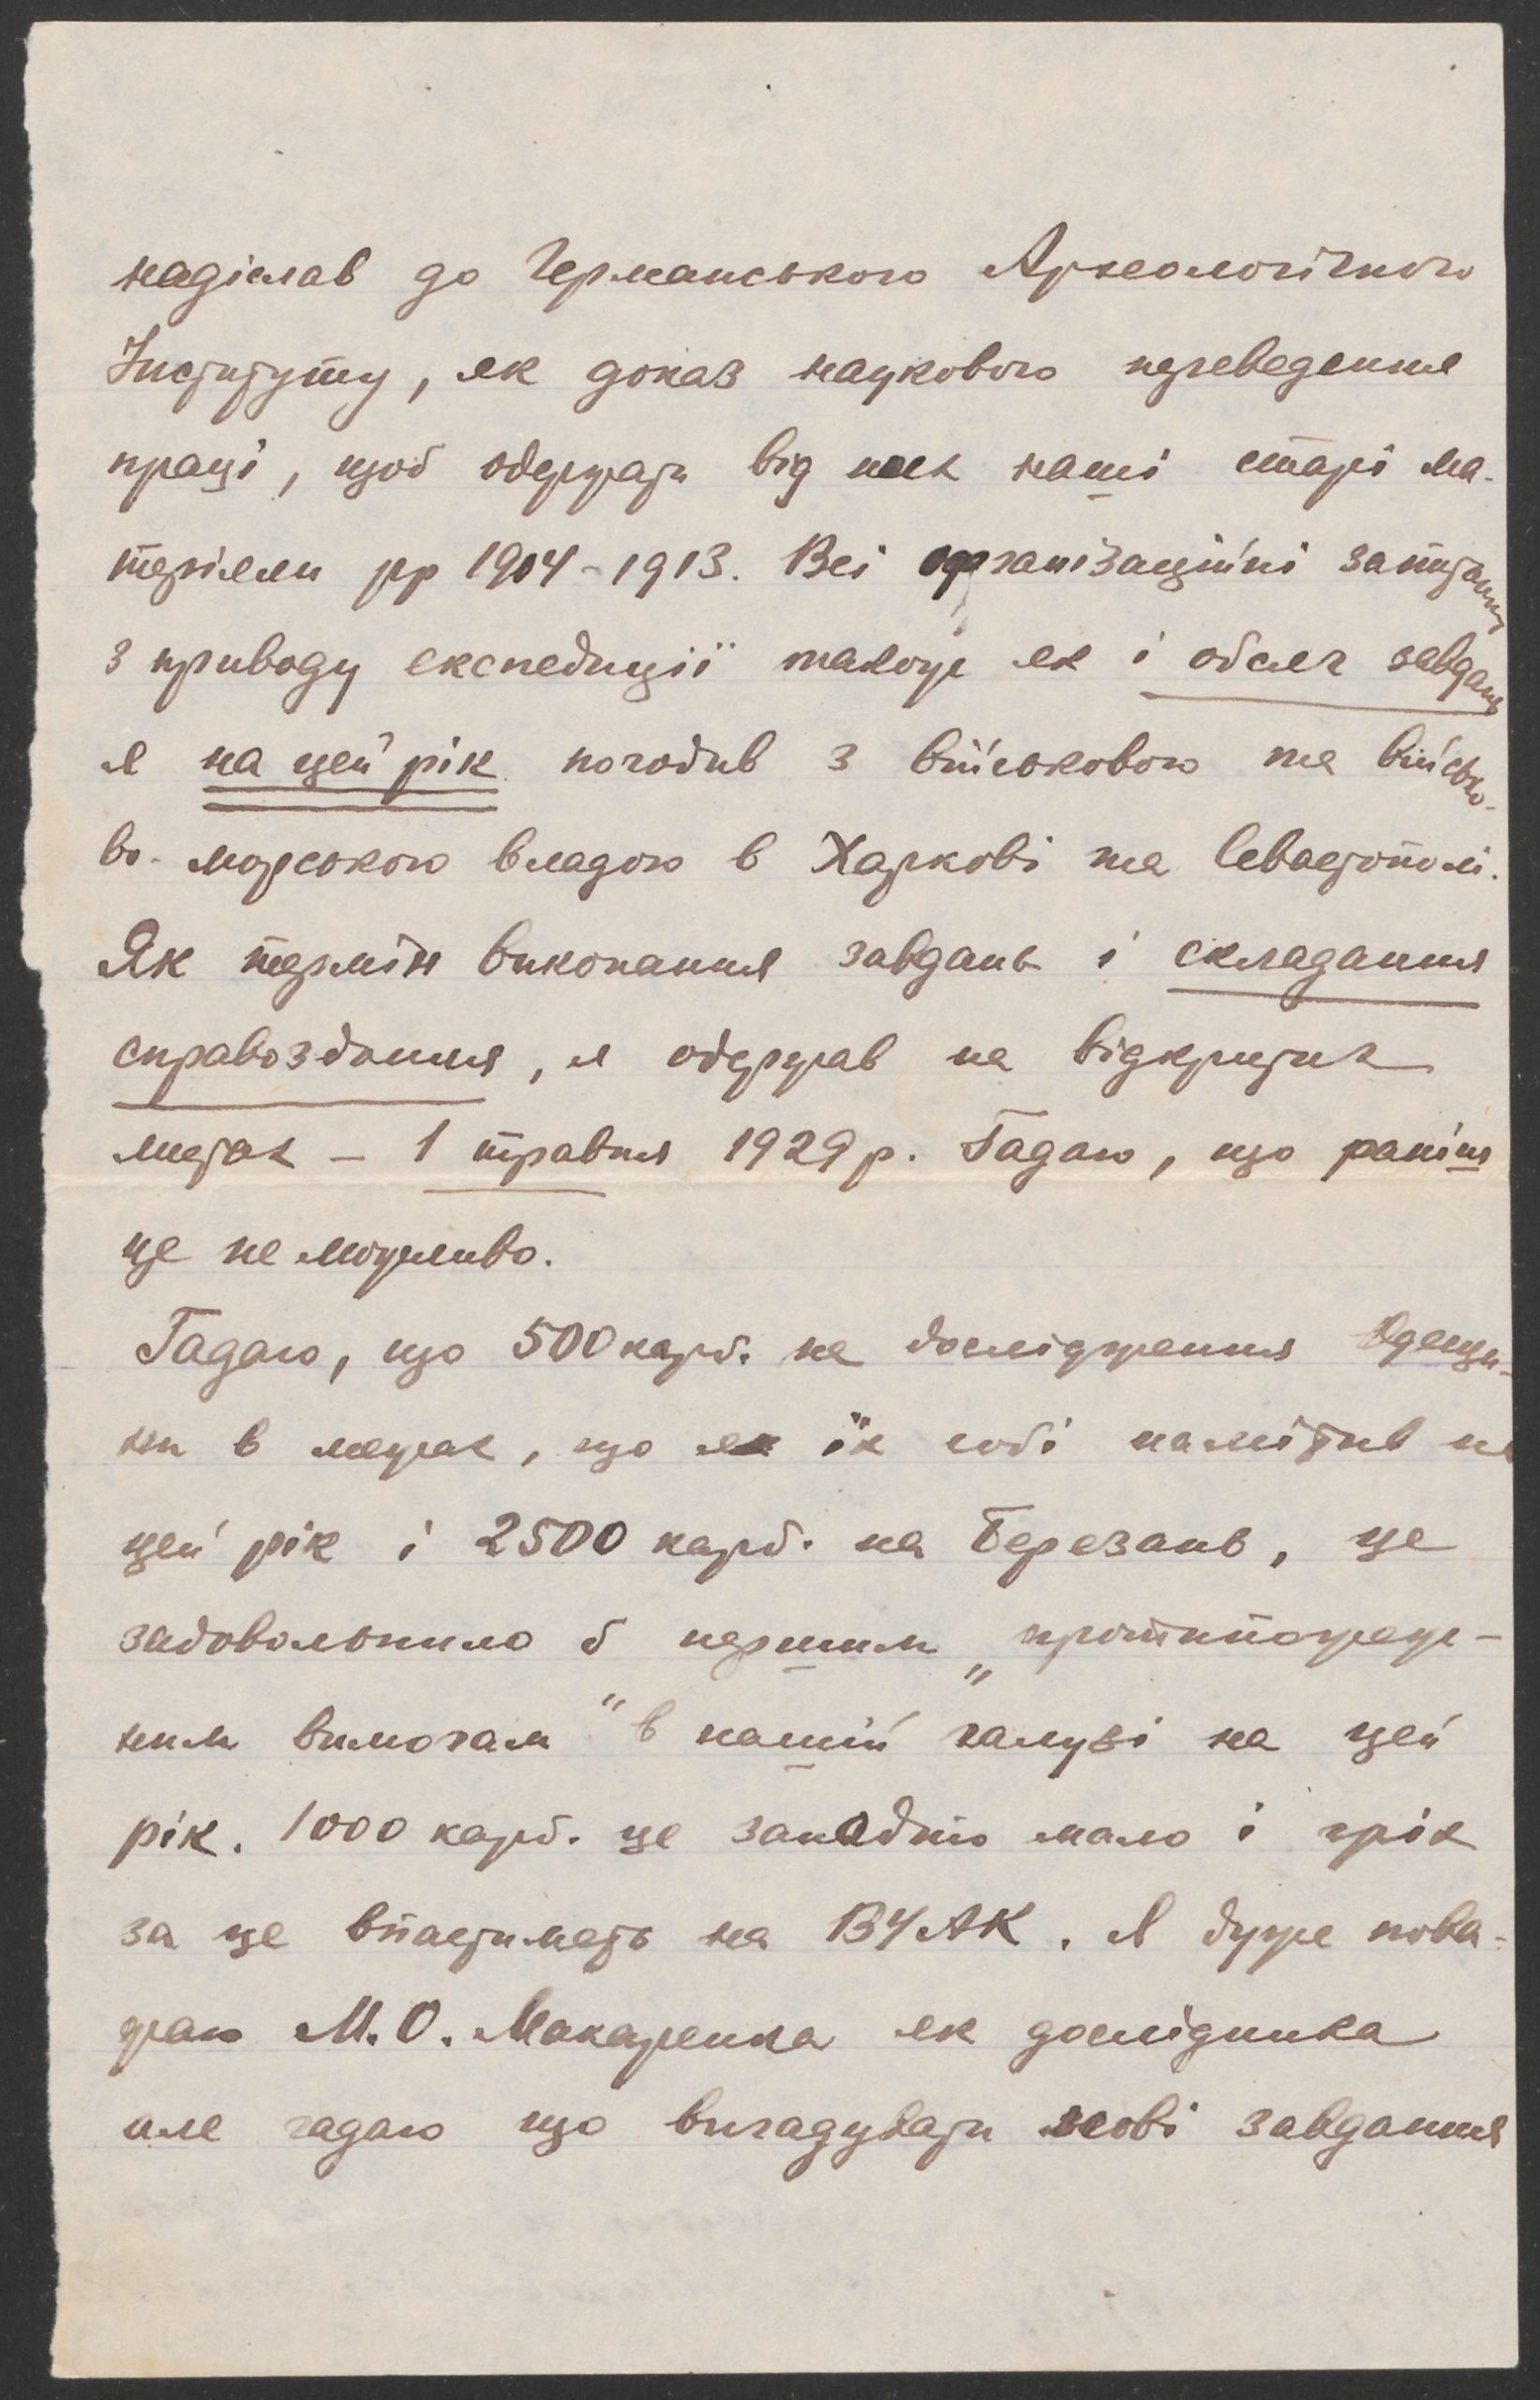 надіслав до Германського Археологічного
Інституту, як доказ наукового переведення
праці, щоб одержати від них наші старі ма-
теріяли рр 1904-1913. Всі організаційні запитання
з приводу експедиції також як і обсяг завдань
я на цей рік погодив з військовою та військо-
во-морською владою в Харкові та Севастополі.
Як термін виконання завдань і складання
справоздання, я одержав на відкритих
листах – 1 травня 1929 р. Гадаю, що раніш
це неможливо.
Гадаю, що 500 карб. на дослідження Одещи-
ни в межах, що я їх собі намітив на
цей рік і 2500 карб. на Березань, це
задовольнило б першим „протипожеж-
ним вимогам" в нашій галузі на цей
рік. 1000 карб. це занадто мало і гріх
за це впастиметь на ВУАК. Я дуже пова-
жаю М. О. Макаренка як дослідника
але гадаю що вигадувати нові завдання